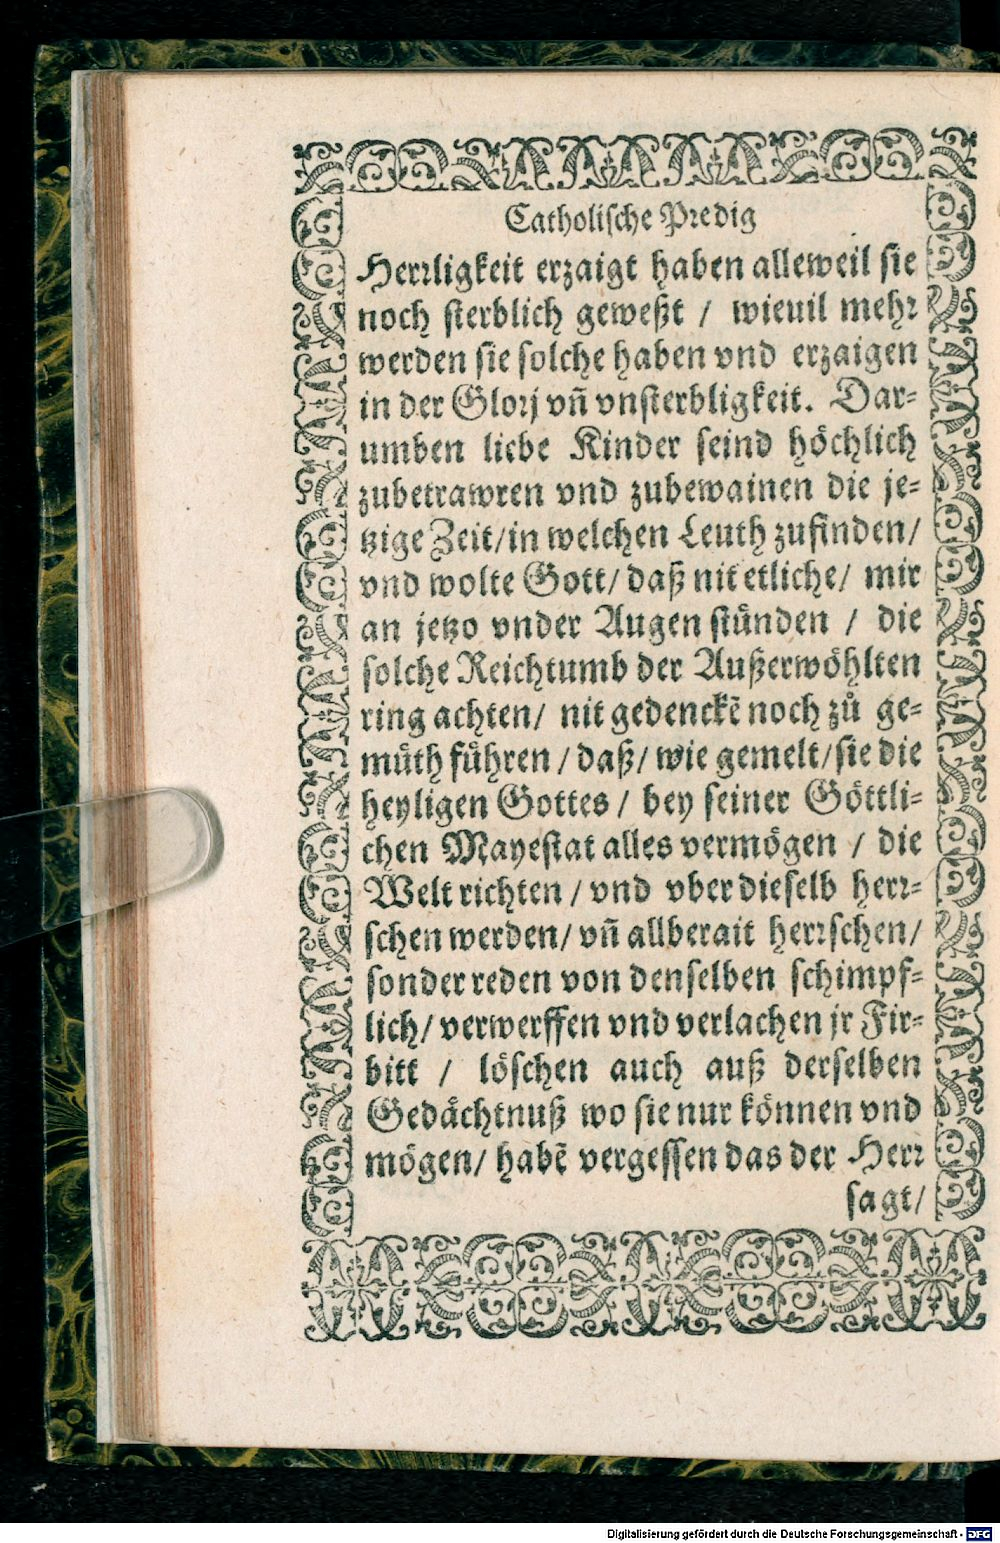 Catholische Predig
Herrligkeit erzaigt haben alleweil sie
noch sterblich geweßt / wieuil mehr
werden sie solche haben vnd erzaigen
in der Glorj vñ vnsterbligkeit. Dar-
umben liebe Kinder seind höchlich
zubetrawren vnd zubewainen die je-
tzige Zeit/in welchen Leuth zufinden/
vnd wolte Gott/ daß nit etliche/ mir
an jetzo vnder Augen stünden / die
solche Reichtumb der Außerwöhlten
ring achten/ nit gedenckẽ noch zů ge-
müth führen / daß/ wie gemelt/sie die
heyligen Gottes / bey seiner Göttli-
chen Mayestat alles vermögen / die
Welt richten / vnd vber dieselb herr-
schen werden/ vñ allberait herrschen/
sonder reden von denselben schimpf-
lich/ verwerffen vnd verlachen jr Fir-
bitt / löschen auch auß derselben
Gedächtnuß wo sie nur können vnd
mögen/ habẽ vergessen das der Herr
sagt/
Digitalisierung gefördert durch die Deutsche Forschungsgemeinschaft - DFG